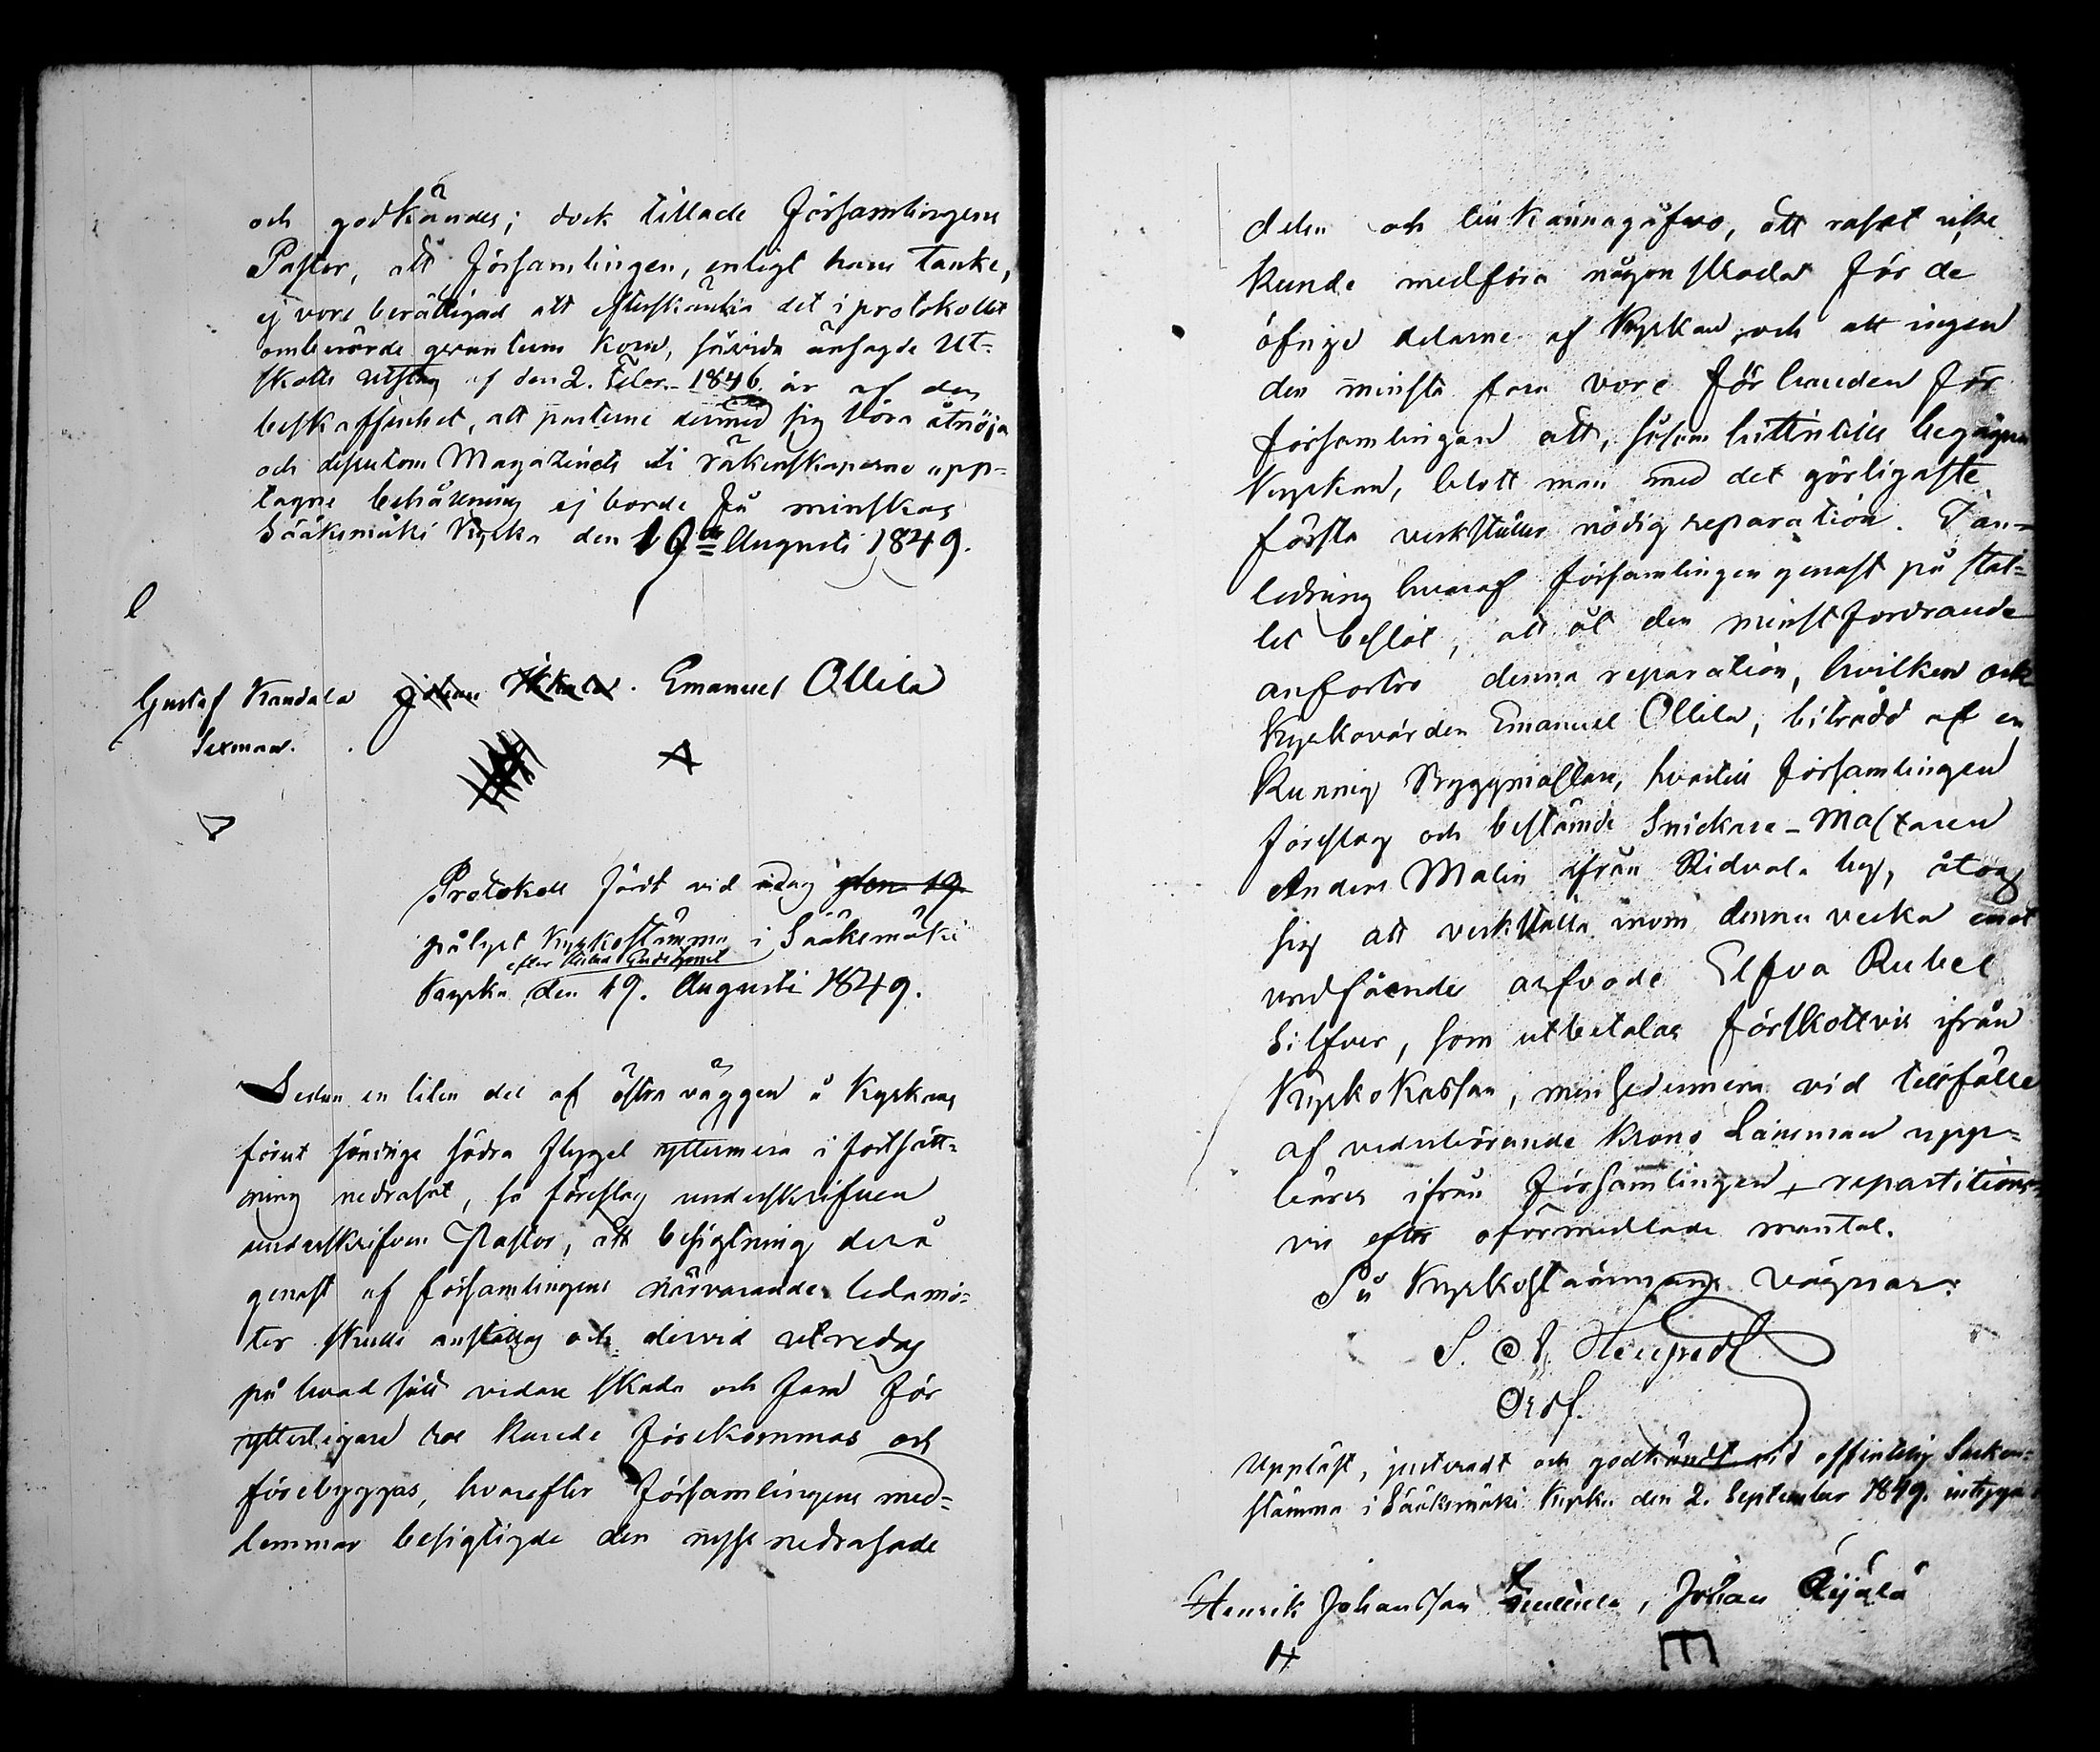 och godkändes; dock tillade Församlingens
Pastor, att Församlingen, enligt hans tanke,
ej vore berättigad att efterskänka det i protokollet
omberörde tunnan korn, såvida änsagde Ut-
skotts utslag af den 2. Febr. 1846 är af den
beskaffenhet, att parterne dermed sig böra åtnöja
och dessutom Magazinets uti räkenskaperne upp-
tagne behållning ej borde få minskas
Sääksmäki Kyrka den 19de Augusti 1849.
Gustaf Kandala Johan Emanuel Ollila
Sexman.
Protokoll fördt vid idag den 19
pålyst Kyrkostämma i Sääksmäki
efter slutad Gudstjenst
Kyrka den 19. Augusti 1849.
Sedan en liten del af östra väggen å Kyrkans
förut söndriga södra flygel yttermera i fortsätt-
ning nedrasat, så föreslog underskrifven
underskrifven Pastor, att besigtning derå
genast af församlingens närvarande ledamö-
ter skulle anställas och dervid utredas
på hvad sätt vidare skada och fara för
ytterligare ras kunde förekommas och
förebyggas, hvarefter Församlingens med-
lemmar besigtigde den nyss nedrasade
delen och tillkännagåfvo, att raset icke
kunde medföra någon skada för de
öfrige delarne af Kyrkan och att ingen
den minsta fara vore för handen för
församlingen att, såsom hittintills begagna
Kyrkan, blott man med det görligaste
första verkställer nödig reparation. I an-
ledning hvaraf Församlingen genast på stäl-
let beslöt, att åt den minst fordrande
anförtro denna reparation, hvilken ock
Kyrkovärden Emanuel Ollila, biträdd af en
kunnig Byggmästare, hvartill församlingen
föreslog och bestämde Snickare-Mästaren
Anders Malin ifrån Ridvala by, åtog
sig att verkställa inom denna vecka emot
undfående arfvode Elfva Rubel
Silfver, som utbetalas förskottvis ifrån
Kyrkokassan, men sedermera vid tillfälle
af vederbörande Krono Länsman upp-
bäres ifrån Församlingen repartitions-
vis efter oförmedlade mantal.
På Kyrkostämmans vägnar:
Ordf.
Uppläst, justeradt och godkändt vid offentelig Socken-
stämma i Sääksmäki Kyrka den 2. September 1849. intyga
Henrik Johansson , Johan Äijälä